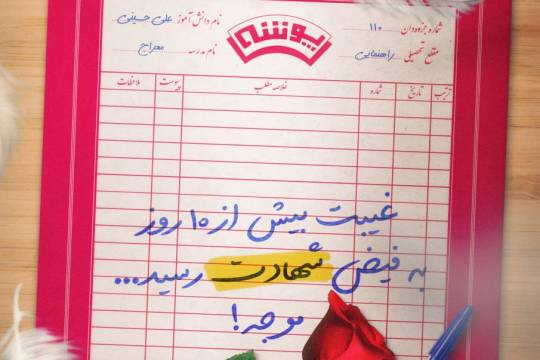 شماره جزوه‌دان ۱۱۰
نام دانش آموز علی حسینی
پوشه
مقطع تحصیلی راهنمایی
نام مدرسه معراج
ترتیب
تاریخ
شماره
خلاصه مطلب
پیوست
ملاحظات
غیبت بیش از ۱۰ روز
به فیض شهادت رسید...
موجه!